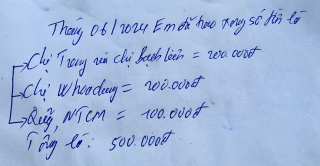 Tháng 06/2024 Em đã trao xong số tiền là
Chị Trang và chị Bạch Liên = 200.000đ
Chị = 200.000đ
Quỹ NTCM = 100.000đ
Tổng là: 500.000đ